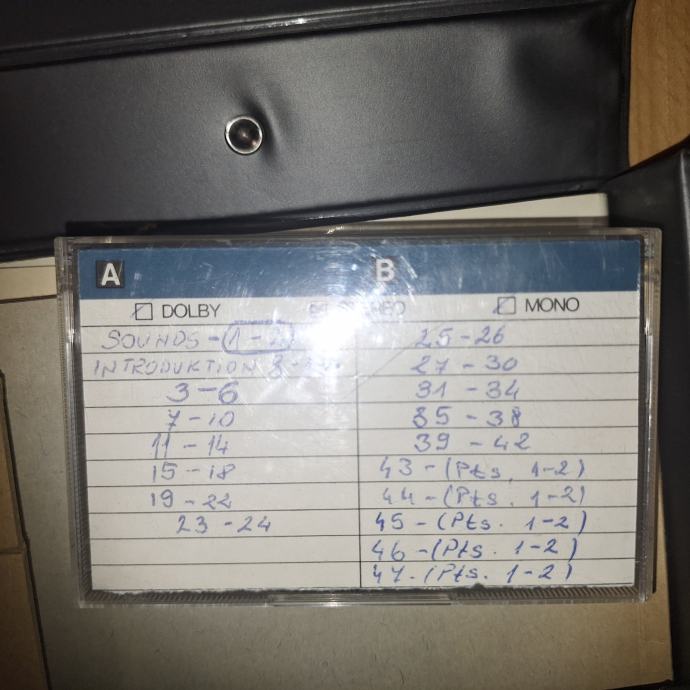 A B
DOLBY STEREO MONO
SOUNDS - (1 - 2)
INTRODUKTION
3-6
7-10
11 - 14
15 - 18
19 - 22
23 - 24
25-26
27 - 30
31 - 34
35 - 38
39 - 42
43 - (Pts. 1-2)
44 - (Pts. 1-2)
45 - (Pts. 1-2)
46 - (Pts. 1-2)
47. (Pts. 1-2)